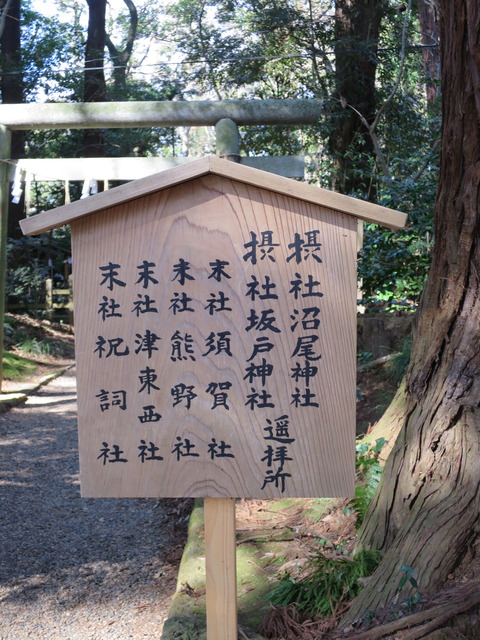 摂社沼尾神社
摂社坂戸神社
遥拝所
末社須賀社
末社熊野社
末社津東西社
末社祝詞社